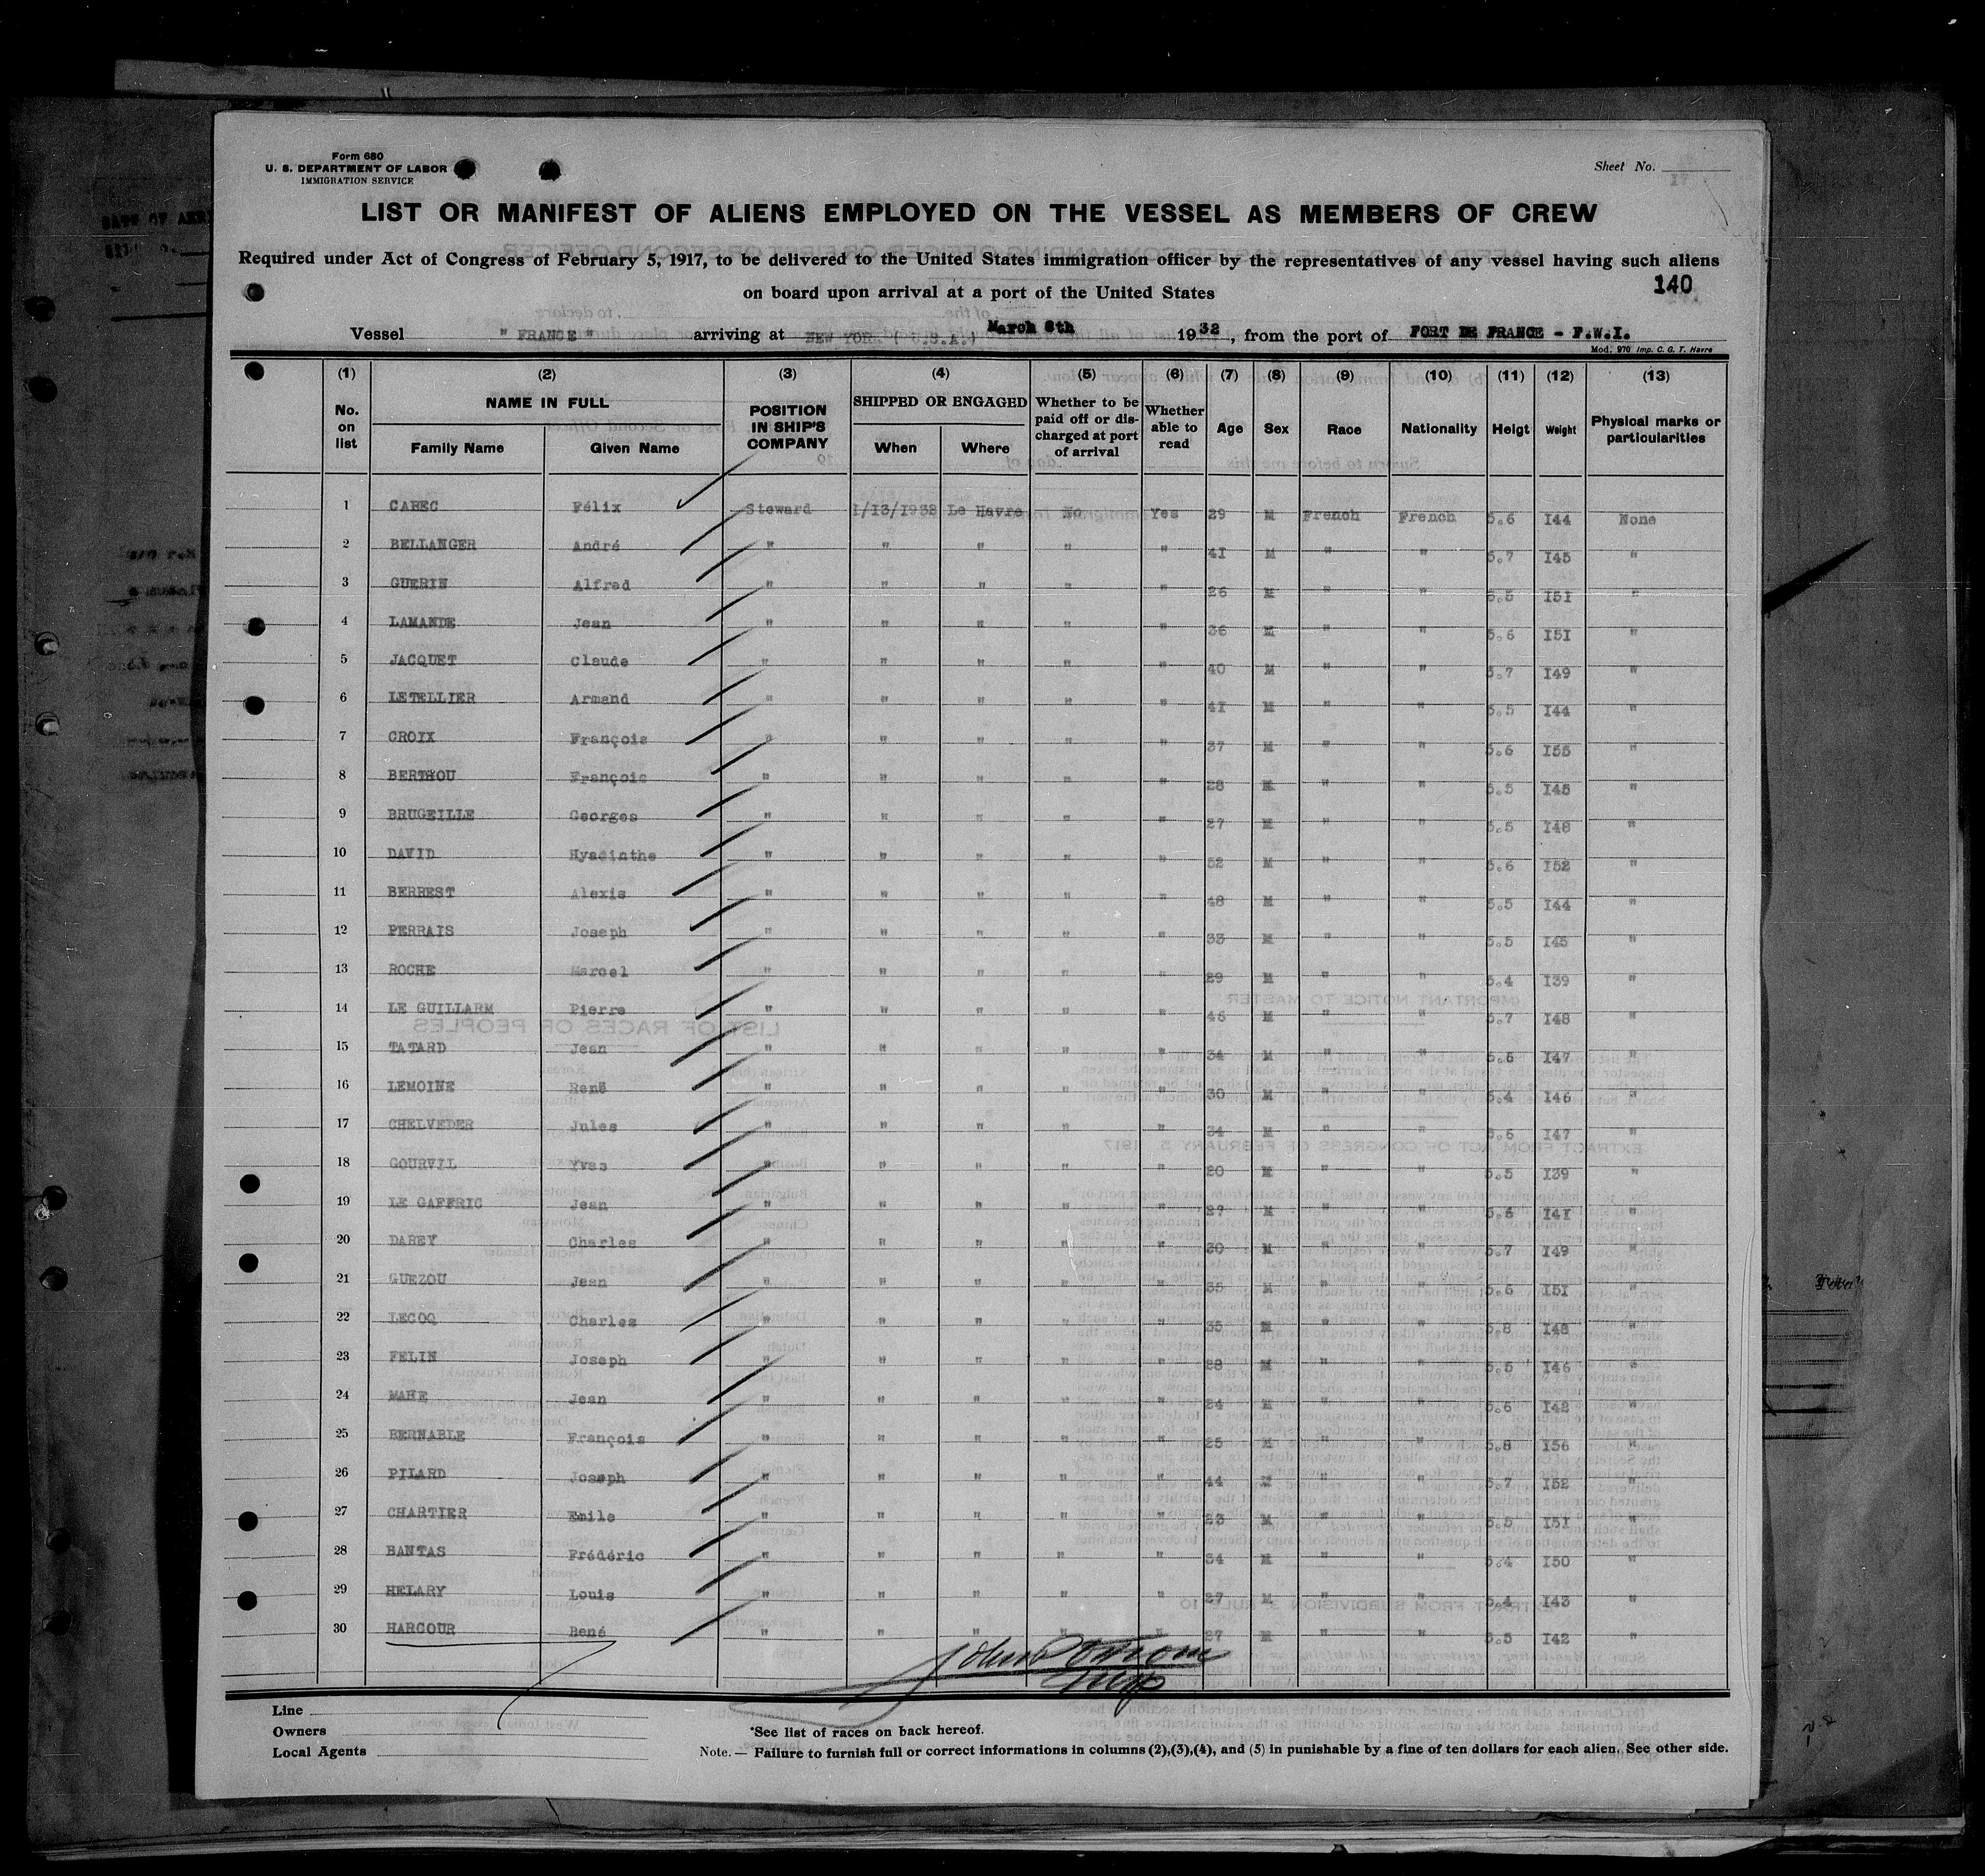 Form 680
U. S. DEPARTMENT OF LABOR
IMMIGRATION SERVICE
Sheet No. 17
LIST OR MANIFEST OF ALIENS EMPLOYED ON THE VESSEL AS MEMBERS OF CREW
Required under Act of Congress of February 5, 1917, to be delivered to the United States immigration officer by the representatives of any vessel having such aliens
on board upon arrival at a port of the United States
140
Vessel " FRANCE " arriving at NEW YORK ( U.S.A.) March 8th 1932, from the port of FORT DE FRANCE - F.W.I.
Mod. 970 Imp. C. G. T. Havre
(1) (2) (3) (4) (5) (6) (7) (8) (9) (10) (11) (12) (13)
No. on list NAME IN FULL Family Name Given Name POSITION IN SHIP'S COMPANY SHIPPED OR ENGAGED When Where Whether to be paid off or discharged at port of arrival Whether able to read Age Sex Race Nationality Heigt Weight Physical marks or particularities
1 CABEC Félix Steward I/I3/1932 Le Havre No Yes 29 M French French 5.6 I44 None
2 BELLANGER André " " " " " 41 M " " 5.7 I45 "
3 GUERIN Alfred " " " " " 26 M " " 5.5 I5I "
4 LAMANDE Jean " " " " " 36 M " " 5.6 I5I "
5 JACQUET Claude " " " " " 40 M " " 5.7 I49 "
6 LETELLIER Armand " " " " " 4I M " " 5.5 I44 "
7 CROIX François " " " " " 37 M " " 5.6 I55 "
8 BERTHOU François " " " " " 28 M " " 5.5 I45 "
9 BRUGEILLE Georges " " " " " 27 M " " 5.5 I48 "
10 DAVID Hyacinthe " " " " " 52 M " " 5.6 I52 "
11 BERREST Alexis " " " " " 48 M " " 5.5 I44 "
12 PERRAIS Joseph " " " " " 33 M " " 5.5 I45 "
13 ROCHE Marcel " " " " " 29 M " " 5.4 I39 "
14 LE GUILLARM Pierre " " " " " 46 M " " 5.7 I48 "
15 TATARD Jean " " " " " 34 M " " 5.6 I47 "
16 LEMOINE René " " " " " 30 M " " 5.4 I46 "
17 CHELVEDER Jules " " " " " 34 M " " 5.6 I47 "
18 GOURVIL Yves " " " " " 20 M " " 5.5 I39 "
19 LE GAFFRIC Jean " " " " " 27 M " " 5.6 I4I "
20 DABEY Charles " " " " " 30 M " " 5.7 I49 "
21 GUEZOU Jean " " " " " 35 M " " 5.6 I5I "
22 LECOQ Charles " " " " " 35 M " " 5.8 I48 "
23 FELIN Joseph " " " " " 28 M " " 5.5 I46 "
24 MAHE Jean " " " " " 24 M " " 5.6 I42 "
25 BERNABLE François " " " " " 25 M " " 5.8 I56 "
26 PILARD Joseph " " " " " 44 M " " 5.7 I52 "
27 CHARTIER Emile " " " " " 23 M " " 5.5 I5I "
28 BANTAS Frédéric " " " " " 34 M " " 5.4 I50 "
29 HELARY Louis " " " " " 27 M " " 5.4 I43 "
30 HARCOUR René " " " " " 27 M " " 5.5 I42 "
Line
Owners
Local Agents
*See list of races on back hereof.
Note. — Failure to furnish full or correct informations in columns (2),(3),(4), and (5) in punishable by a fine of ten dollars for each alien. See other side.